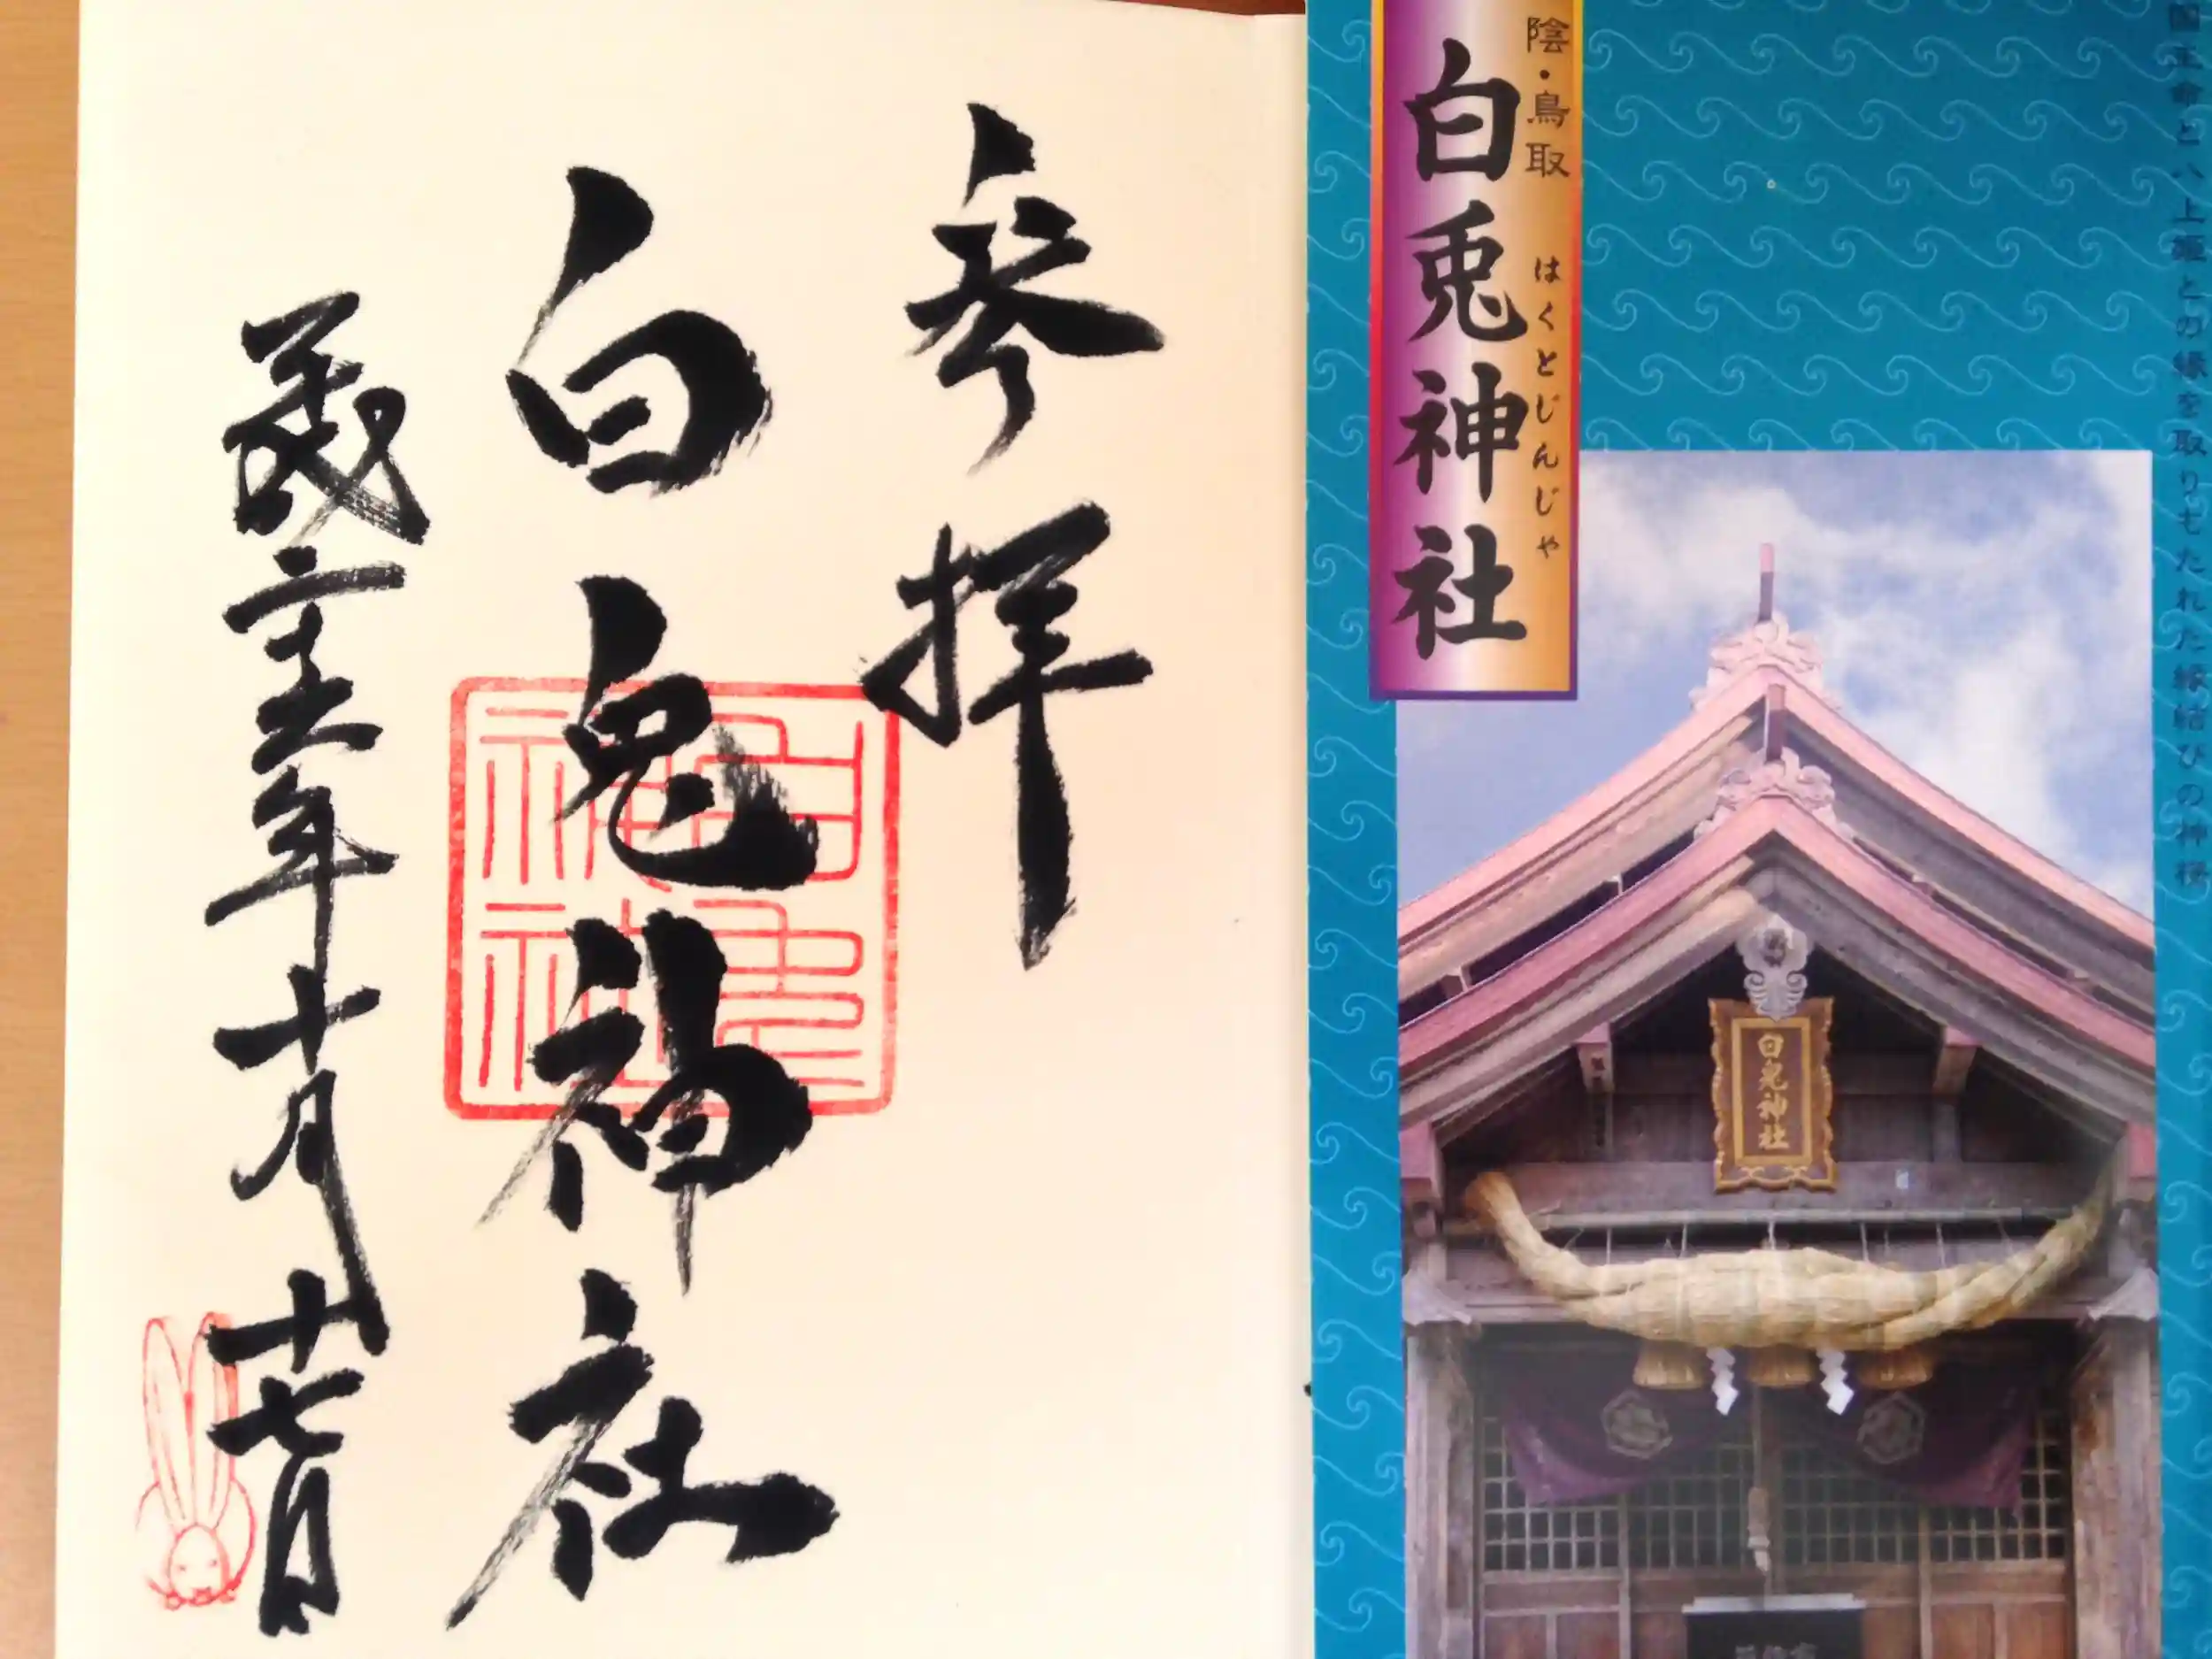 参拝
白兎神社
平成二十五年十月十七日
白兎神社
国主命と八上姫との縁を取りもたれた縁結びの神様
陰・鳥取
はくとじんじゃ
白兎神社
白兎神社